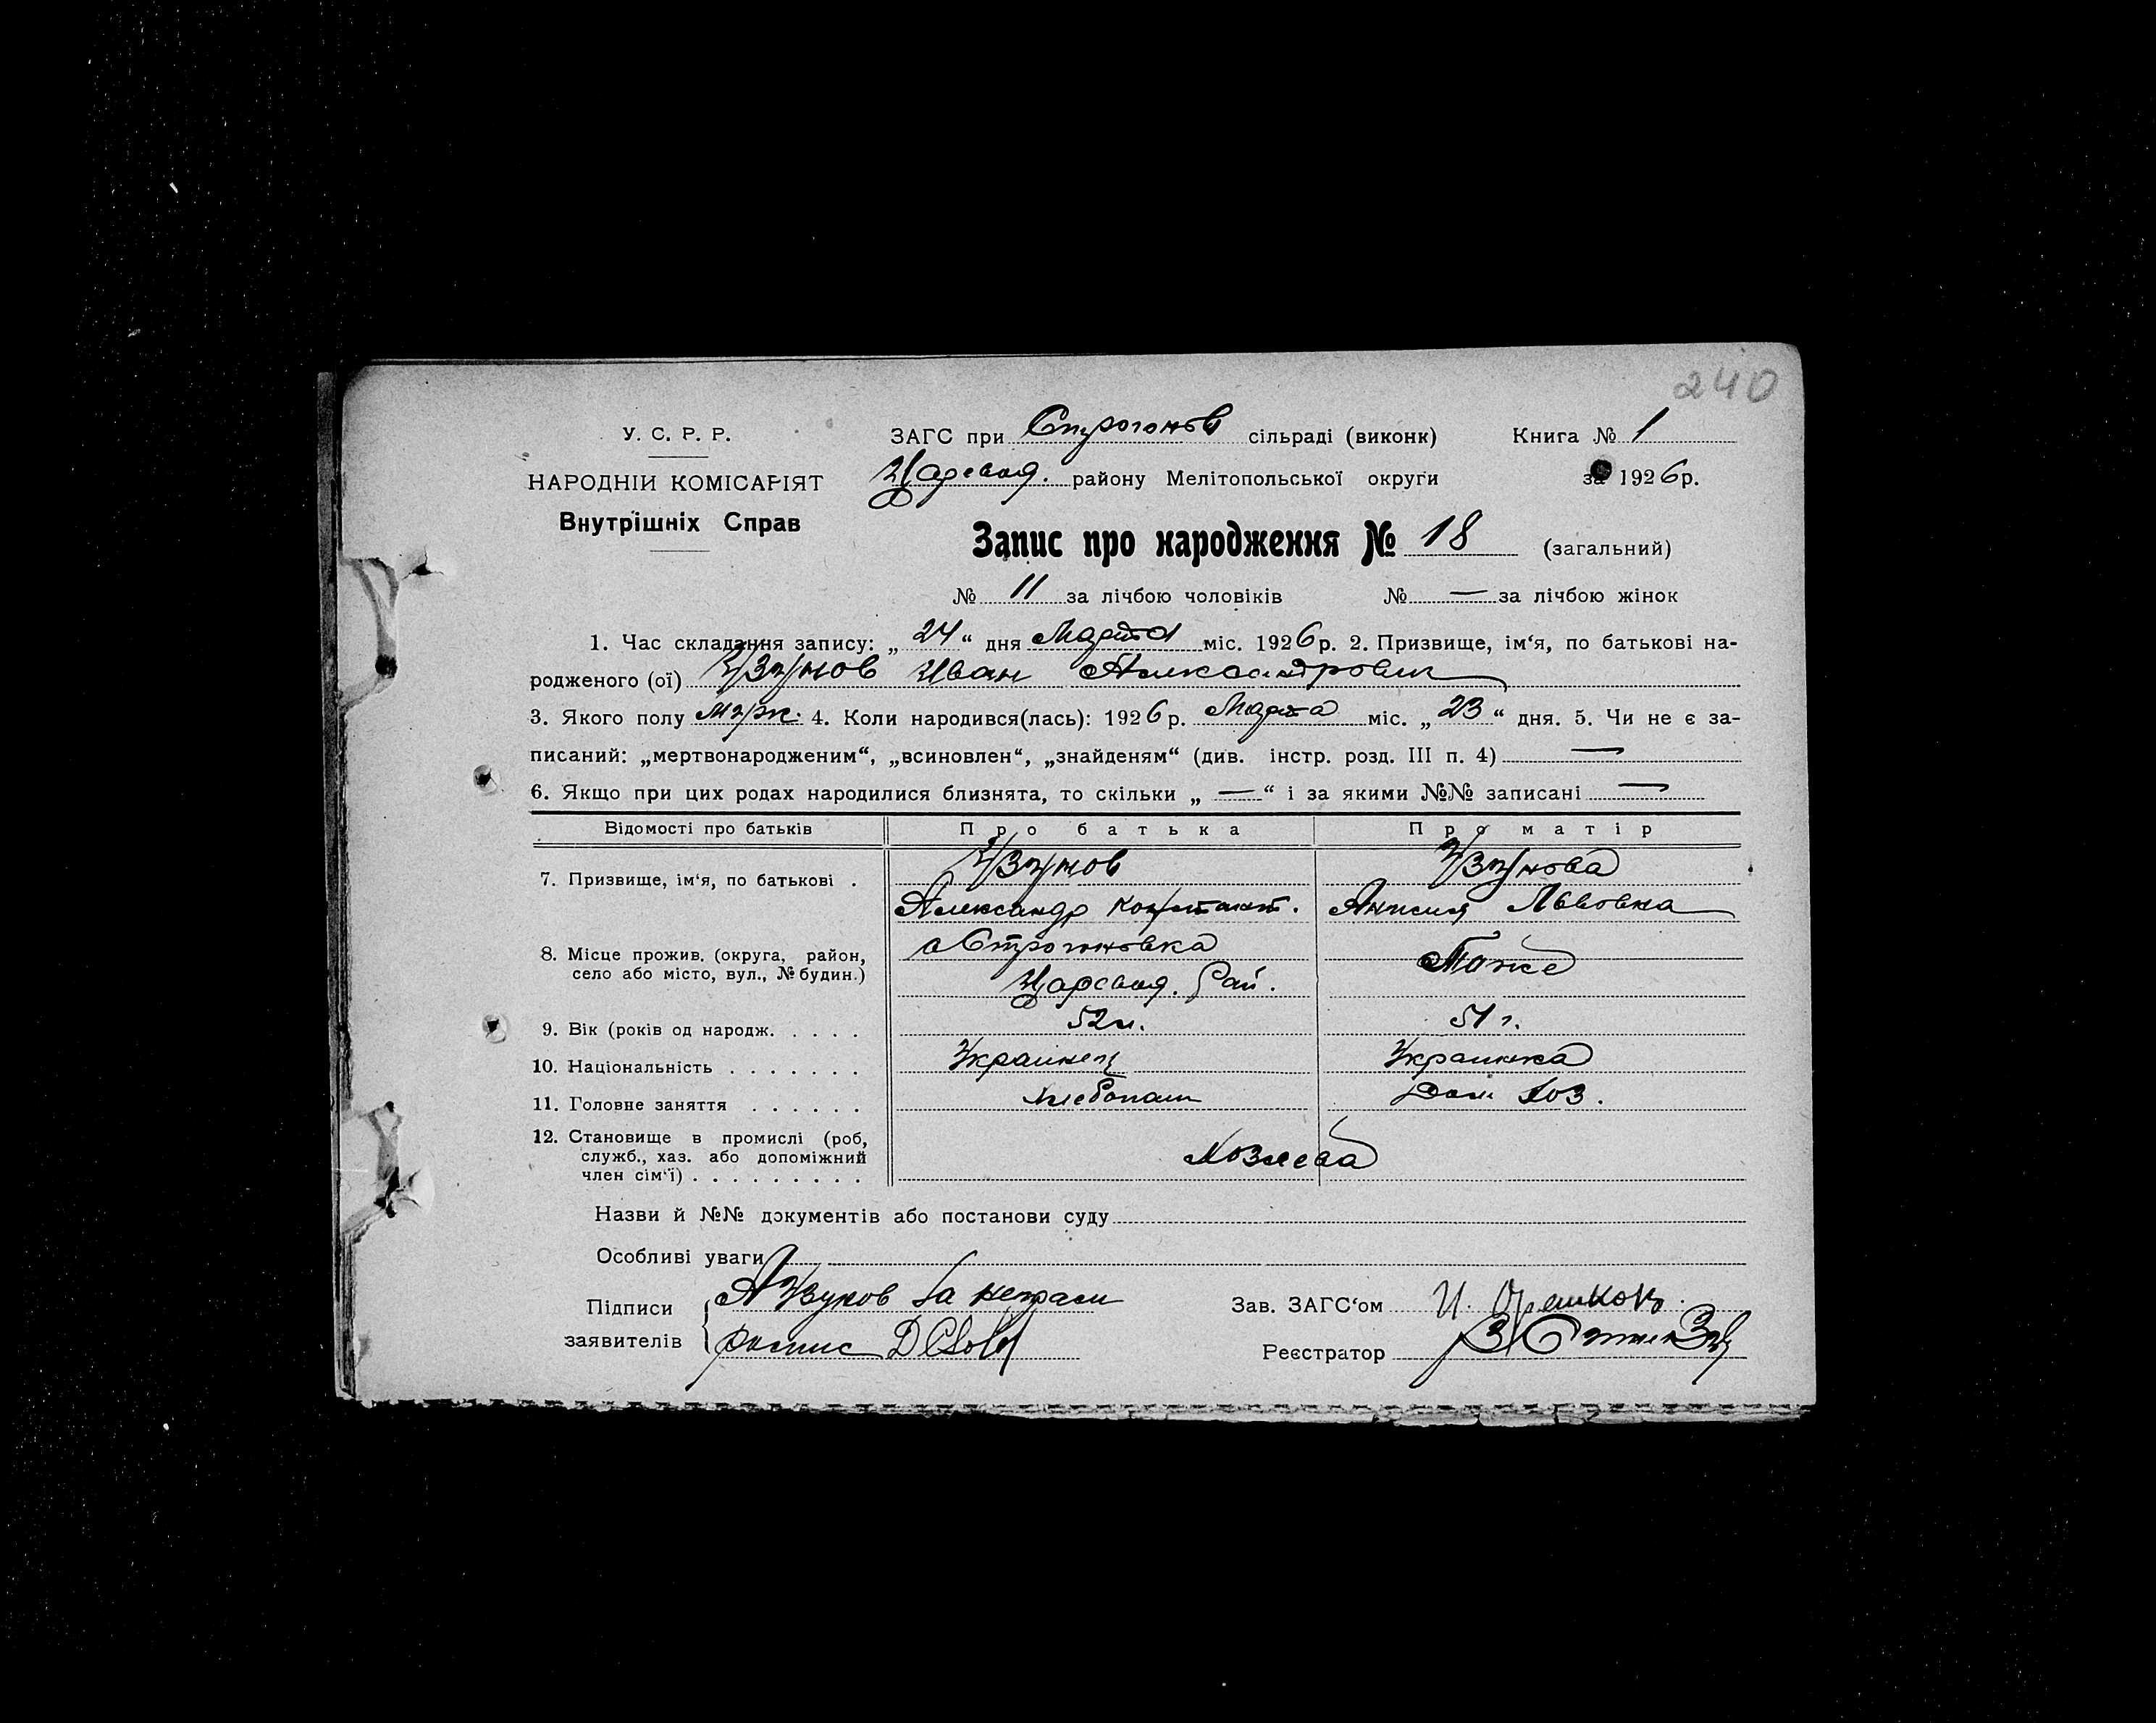 240
У. С. Р. Р.
НАРОДНІЙ КОМІСАРІЯТ
Внутрішніх Справ
ЗАГС при Строгонов сільраді (виконк) Книга № 1
Царевод. району Мелітопольської округи за 1926 р.
Запис про народження № 18 (загальний)
№ 11 за лічбою чоловіків № — за лічбою жінок
1. Час складання запису: „24“ дня Марта міс. 1926 р. 2. Призвище, ім‘я, по батькові на-
родженого (ої) Узунов Иван Александрович
3. Якого полу муж. 4. Коли народився(лась): 1926 р. Марта міс. „23“ дня. 5. Чи не є за-
писаний: „мертвонародженим“, „всиновлен“, „знайденям“ (див. інстр. розд. III п. 4) —
6. Якщо при цих родах народилися близнята, то скільки „—“ і за якими №№ записані —
Відомості про батьків Про батька Про матір
Узунов Узунова
7. Призвище, ім‘я, по батькові .
Александр Констант. Анисия Львовна
с Строгоновка
8. Місце прожив. (округа, район,
село або місто, вул., № будин.)
Тоже
Царевод. Рай.
9. Вік (років од народж. . . . . 52 л. 51 г.
10. Національність . . . . . . . Украинец Украинка
11. Головне заняття . . . . . . Хлебопаш Дом Хоз.
12. Становище в промислі (роб,
служб., хаз. або допоміжний
член сім‘ї) . . . . . . . . .
Хозяева
Назви й №№ документів або постанови суду
Особливі уваги
Підписи
заявителів
А Узунов за неграм
роспис
Зав. ЗАГС‘ом И.
Реєстратор